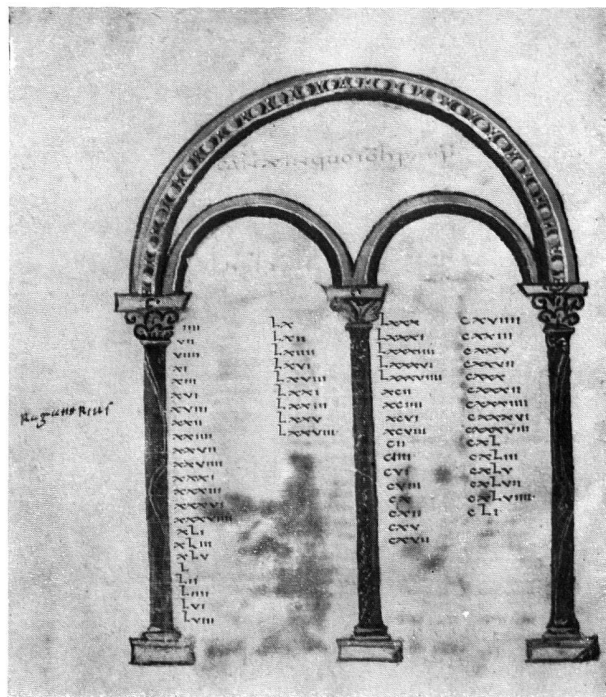 RaganaRius
iiii
vii
viiii
xi
xiii
xvi
xviii
xxii
xxiiii
xxvii
xxviiii
xxxi
xxxiii
xxxvi
xxxviiii
xLi
xLiii
xLv
L
Lii
Liiii
Lvi
Lviii
Lx
Lxii
Lxiiii
Lxvi
Lxviii
Lxxi
Lxxiii
Lxxv
Lxxviii
Lxxx
Lxxxi
Lxxxiiii
Lxxxvi
Lxxxviiii
xcii
xciiii
xcvi
xcviii
cii
ciiii
cvi
cviii
cx
cxii
cxv
cxvii
cxviiii
cxxiii
cxxv
cxxviii
cxxx
cxxxii
cxxxiiii
cxxxvi
cxxxviii
cxL
cxLiii
cxLv
cxLvii
cxLviiii
cLi